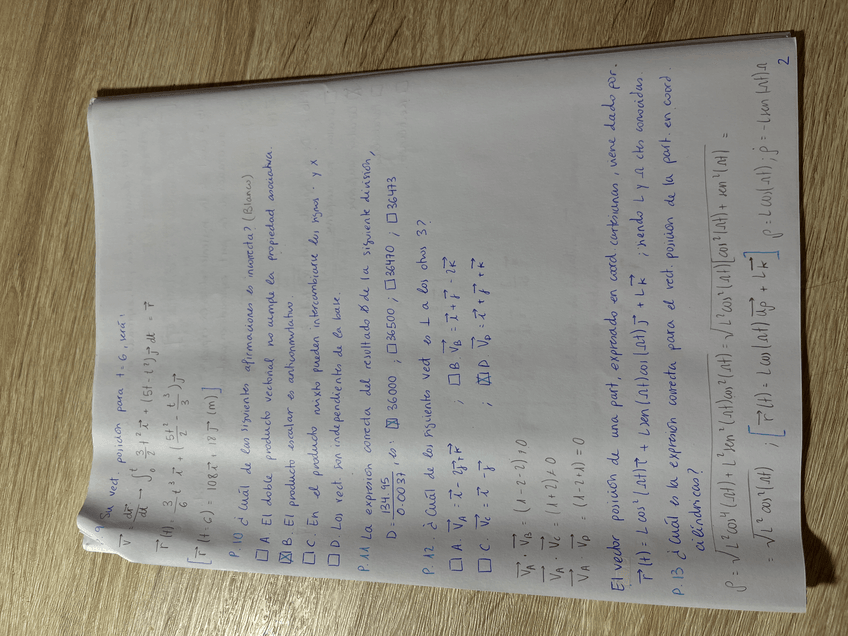 P.9 Su vect posición para t=6, será:
v⃗ = dr⃗/dt → ∫₀ᵗ 3/2 t² i⃗ + (5t - t²) j⃗ dt = r⃗
r⃗(t) = 3/6 t³ i⃗ + (5t²/2 - t³/3) j⃗
[r⃗(t=6) = 108 i⃗ + 18 j⃗ (m)]
P.10 ¿Cuál de las siguientes afirmaciones es incorrecta? (Blanco)
☐ A El doble producto vectorial no cumple la propiedad asociativa.
☒ B. El producto escalar es anticonmutativo.
☐ C. En el producto mixto pueden intercambiarse los signos · y x
☐ D. Los vect. son independientes de la base.
P.11 La expresión correcta del resultado de la siguiente división,
D = 134.95/0.0037, es: ☒ 36000 ; ☐ 36500 ; ☐ 36470 ; ☐ 36473
P.12. ¿Cuál de los siguientes vect es ⊥ a los otros 3?
☐ A. V⃗A = i⃗ - 2j⃗ + k⃗ ; ☐ B V⃗B = i⃗ + j⃗ - 2k⃗
☐ C. V⃗C = i⃗ - j⃗ ; ☒ D V⃗D = i⃗ + j⃗ + k⃗
V⃗A · V⃗B = (1-2-2) ≠ 0
V⃗A · V⃗C = (1+2) ≠ 0
V⃗A V⃗D = (1-2+1) = 0
El vector posición de una part, expresado en coord cartesianas, viene dado por.
r⃗(t) = L cos²(Ωt) i⃗ + L sen(Ωt) cos(Ωt) j⃗ + L k⃗ ; siendo L y Ω ctes conocidas
P.13 ¿Cuál es la expresión correcta para el vect. posición de la part. en coord.
cilíndricas?
ρ = √(L² cos⁴(Ωt) + L² sen²(Ωt) cos²(Ωt)) = √(L² cos²(Ωt) [cos²(Ωt) + sen²(Ωt)]) =
= √(L² cos²(Ωt)) ; [r⃗(t) = L cos(Ωt) u⃗ρ + L k⃗] ρ = L cos(Ωt) ; ρ̇ = -L sen(Ωt) Ω
2